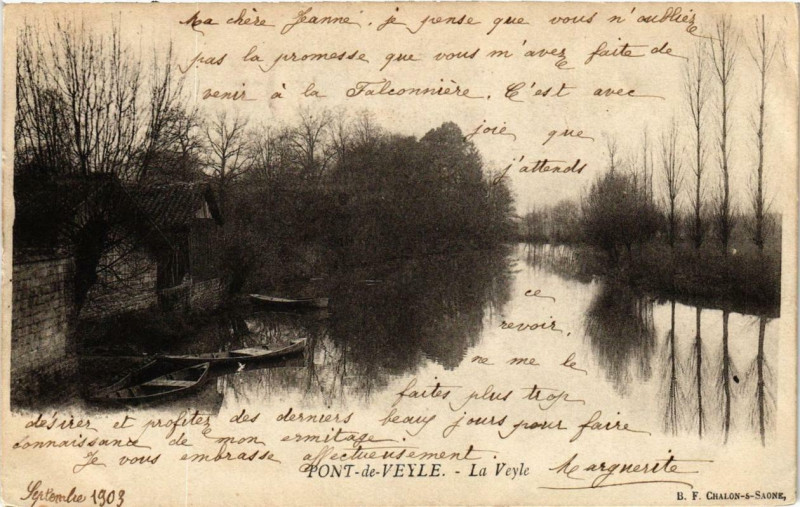 Ma chère Jeanne, je pense que vous n'oubliez
pas la promesse que vous m'avez faite de
venir à la Falconnière. C'est avec
joie que
j'attends
ce
revoir,
ne me le
faites plus trop
désirer et profitez des derniers beaux jours pour faire
connaissance de mon ermitage.
Je vous embrasse affectueusement.
PONT-de-VEYLE. - La Veyle
Marguerite
Septembre 1903
B. F. CHALON-s-SAONE,